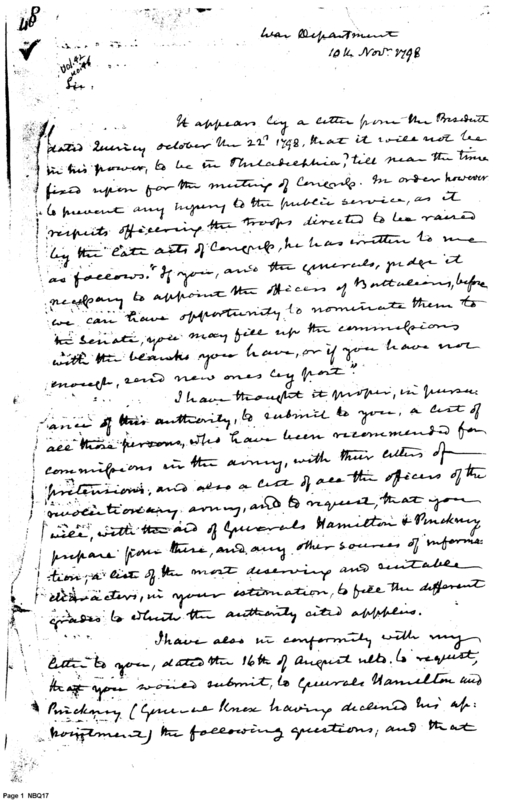 War Department
10th Novr. 1798
Sir,
It appears by a letter from the President
dated Quincy October the 22d 1798, that it will not be
in his power, to be in Philadelphia, till near the time
fixed upon for the meeting of Congress. In order however
to prevent any injury to the public service, as it
respects officering the troops directed to be raised
by the late acts of Congress, he has written to me
as follows. "If you, and the generals, judge it
necessary to appoint the officers of Battalions, before
we can have opportunity, to nominate them to
the Senate, you may fill up the commissions
with the blanks you have, or if you have not
enough, send new ones by post."
I have thought it proper, in pursu-
ance of this authority, to submit to you, a list of
all those persons, who have been recommended for
commissions in the army, with their letters of
pretensions; and also a list of all the officers of the
revolutionary army, and to request, that you
will, with the aid of Generals Hamilton & Pinckney
prepare from these, and any other sources of informa-
tion, a list of the most deserving and suitable
characters, in your estimation, to fill the different
grades to which the authority cited appplies.
I have also in conformity with my
letter to you, dated the 16th of August ulto. to request,
that you would submit, to Generals Hamilton and
Pinckney (General Knox having declined his ap-
pointment) the following questions, and that
Page 1 NBQ17